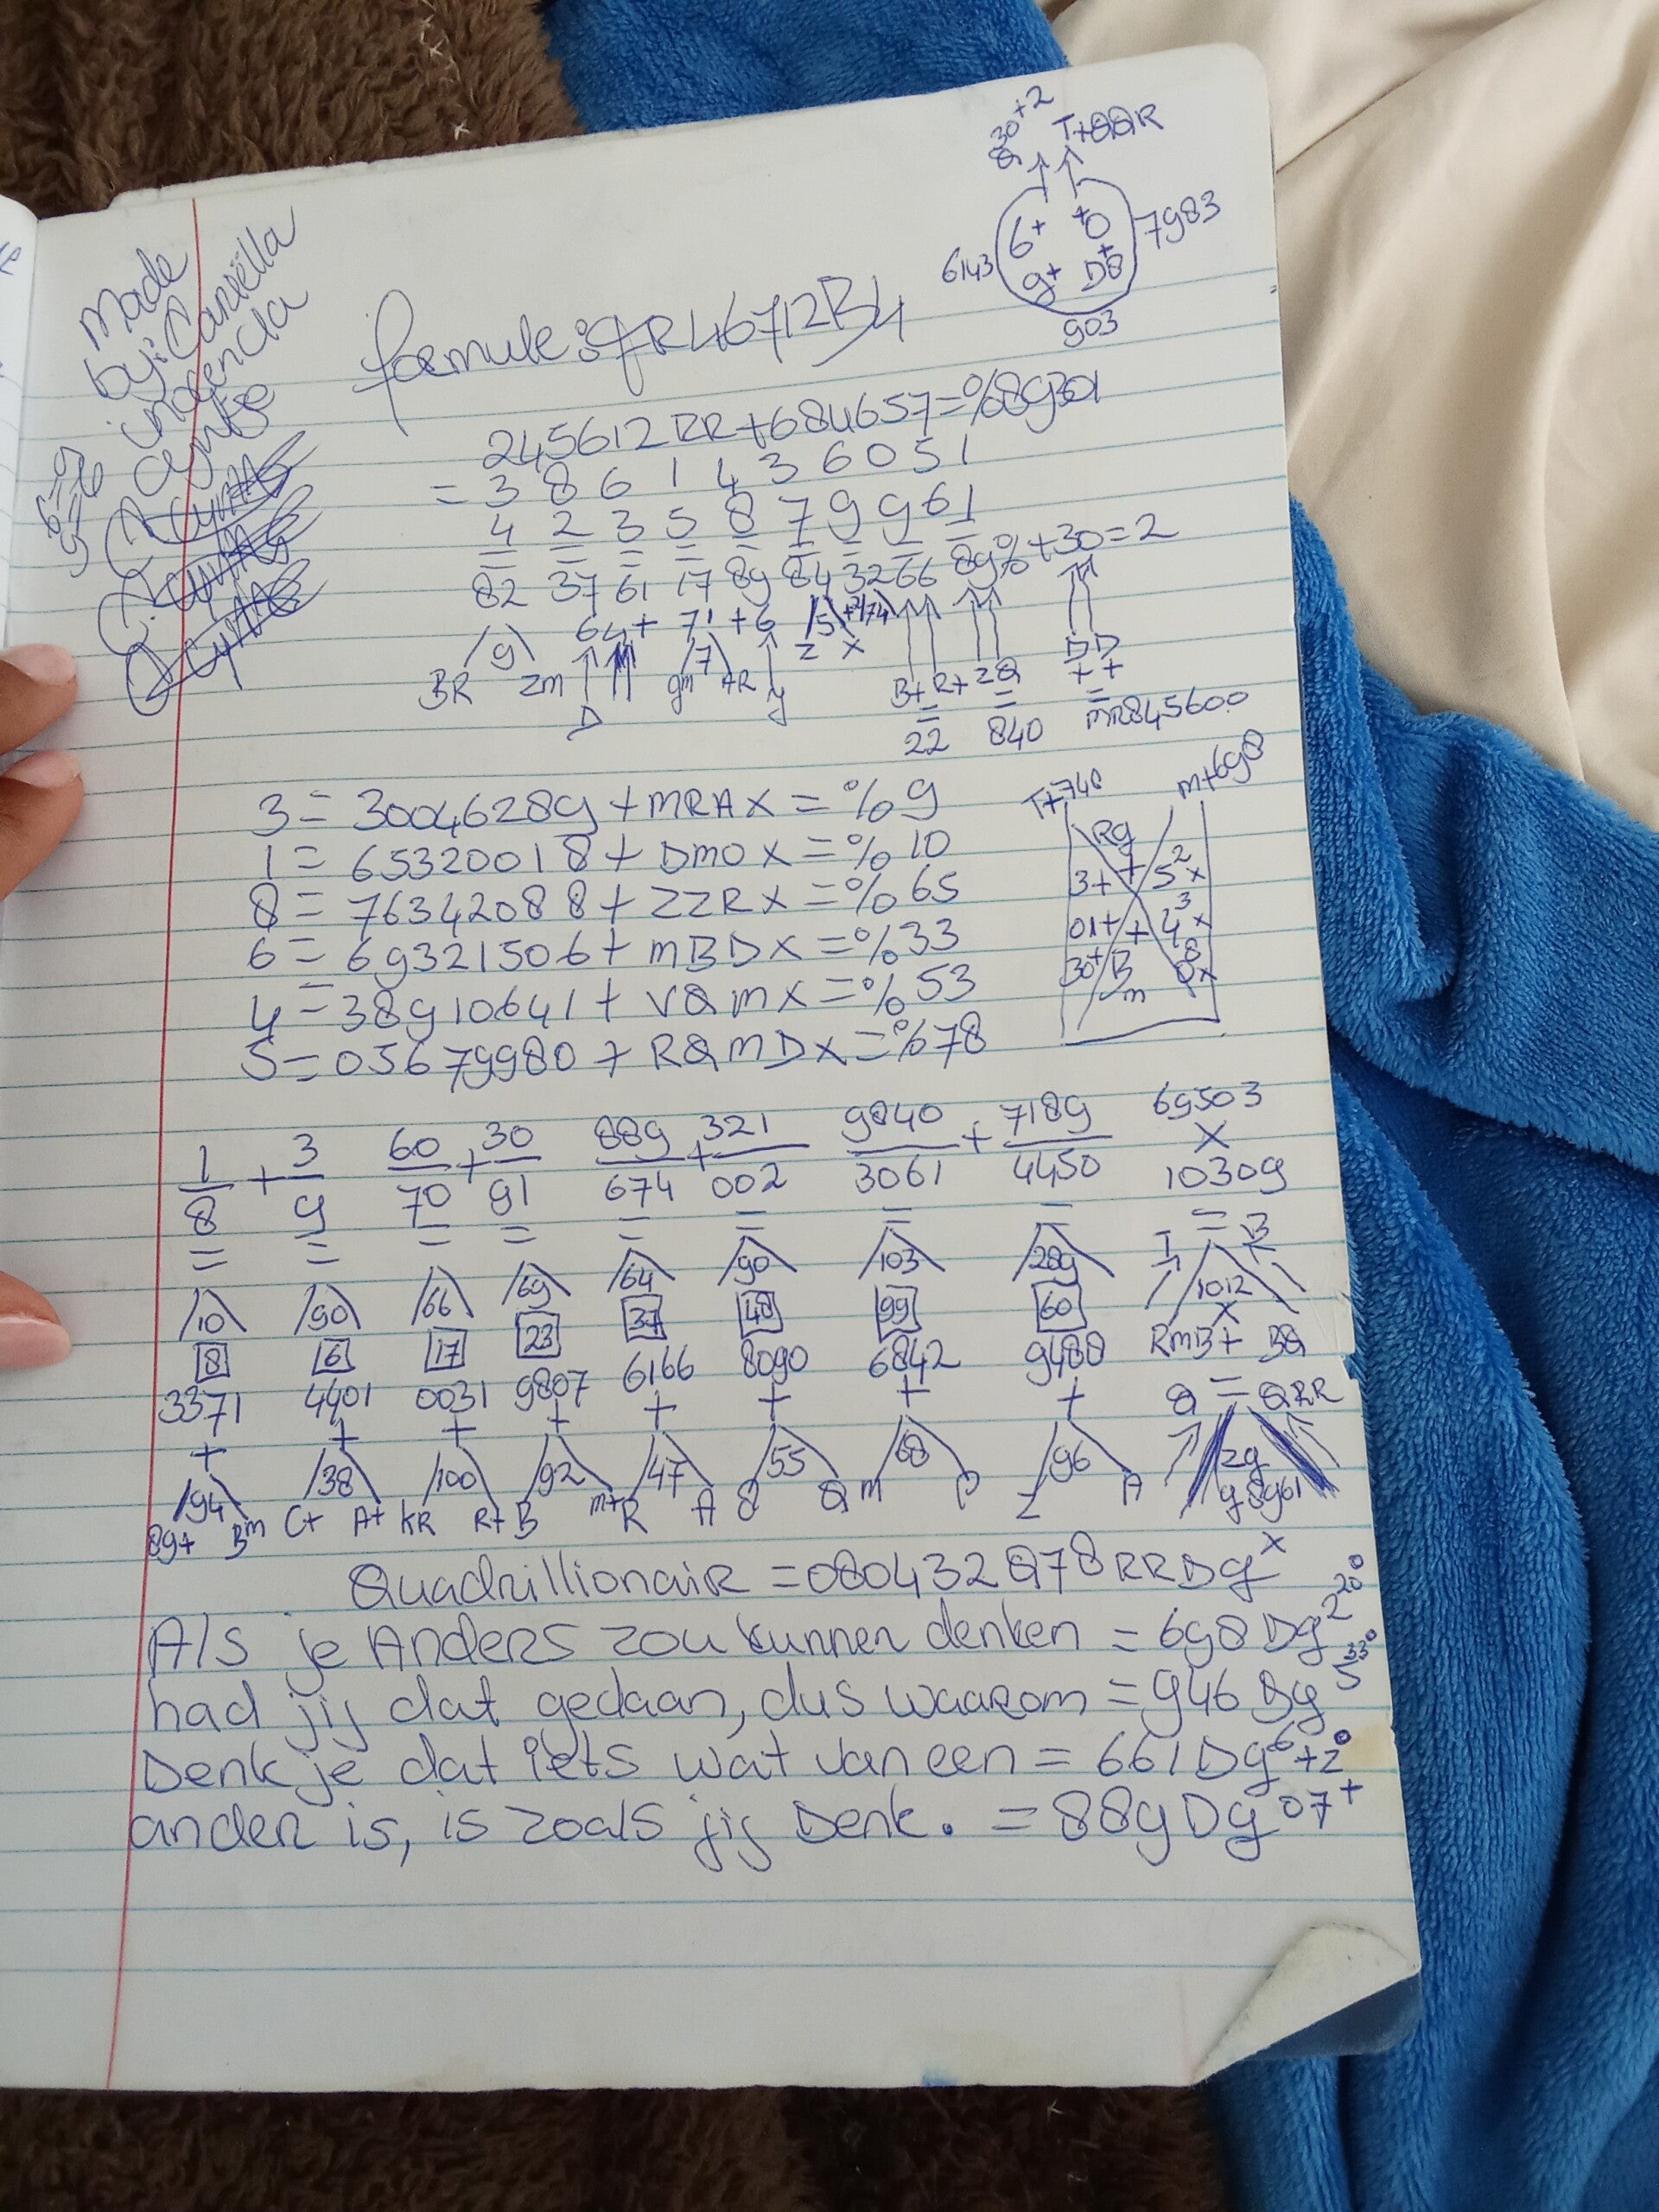 Made
by: Cariëlla
inocencia
Cyntje
6=9
9=6
8 30+2
T+QQR
6+ +0
g+ D8
6143
7983
903
formule: R46712B4
245612RR+684657=%89301
= 3 8 6 1 4 3 6 0 5 1
4 2 3 5 8 7 9 9 6 1
= = = = = = = = =
82 37 61 17 89 84 32 66 89% +30=2
64+ 71 +6
BR /9\ zm
D
gm /7\ AR y
z x
B+ R+ ZQ
= =
22 840
DD
+ +
=
MR845600
3 = 30046289 + MRAX = % 9
1 = 65320018 + DMOX = % 10
8 = 76342088 + ZZRX = % 65
6 = 69321506 + MBDX = % 33
4 = 38910641 + VQMX = % 53
5 = 05679980 + RQMDX = % 78
T+748
M+698
Rg
3+ + 5² x
01+ + 4³ x
30+ B m 8 x
1/8 + 3/9 60/70 + 30/91 889/674 + 321/002 9840/3061 + 7189/4450 69503
X
10309
= = = = = = = = =
/10\ /90\ /66\ /69\ /64\ /90\ /103\ /289\ T /1012\ B
8 6 17 23 37 48 99 60 X
3371 4401 0031 9807 6166 8090 6842 9488 RMB+ BQ
+ + + + + + + + Q = QRR
/94\ /38\ /100\ /92\ /47\ /55\ /68\ /96\ /29
98961
89+ Bm C+ A+ KR R+ B m+ R A 8 Q M P Z A
QuadrillionaiR = 080432Q78RRDg^x
Als je Anders zou kunnen denken = 698 Dg 2 20°
had jij dat gedaan, dus waarom = 946 Bg 5 33°
Denk je dat iets wat van een = 661 Dg 6+2°
ander is, is zoals jij Denk. = 889 Dg 07+